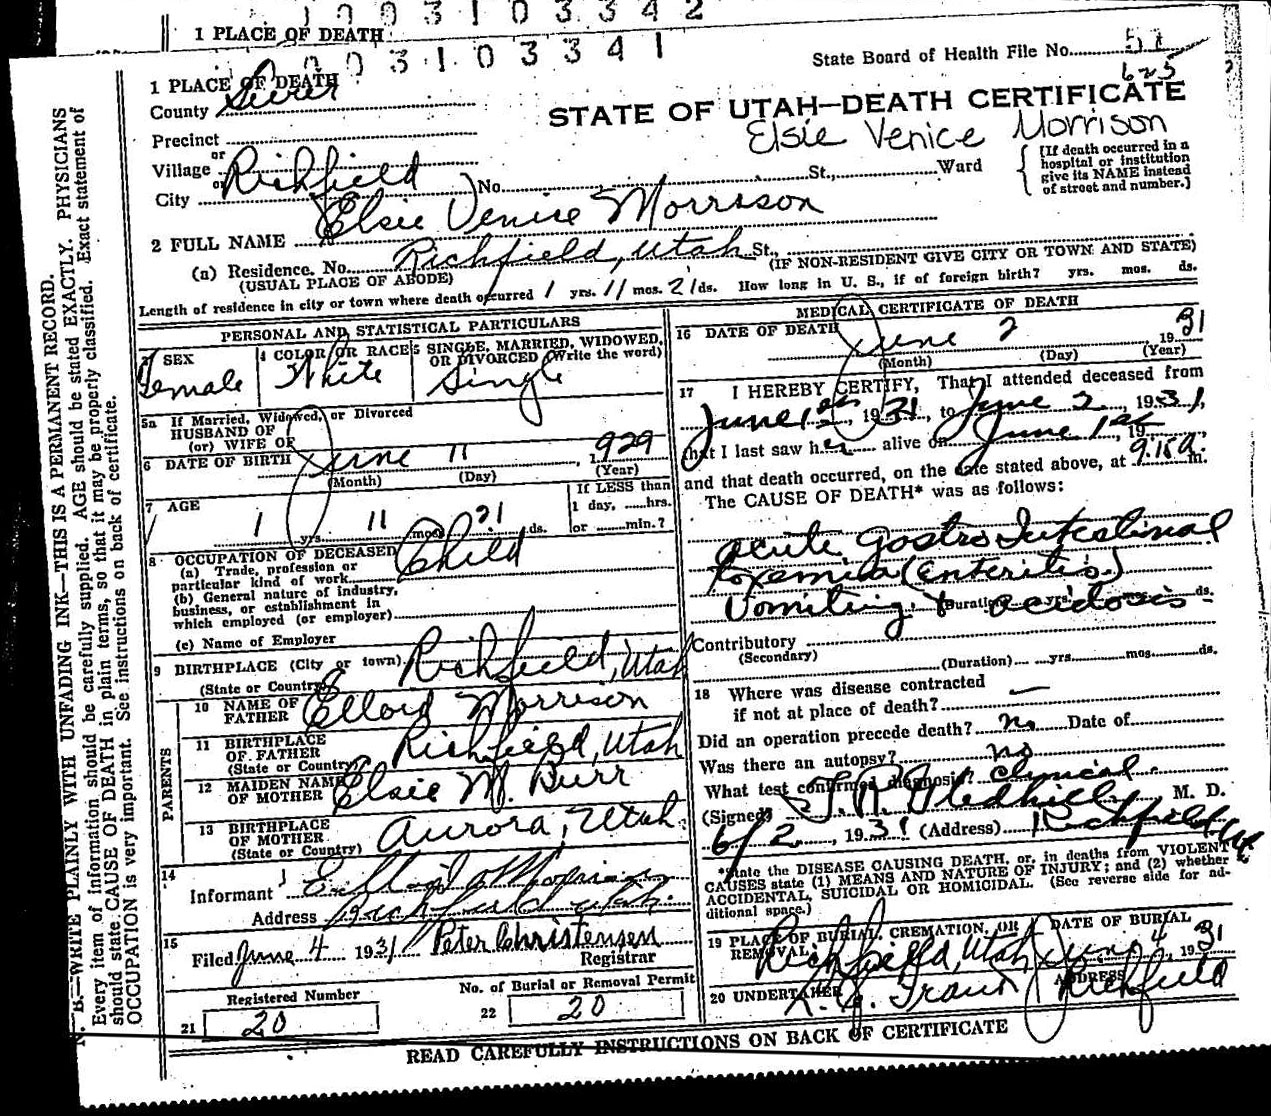 1003103342
1 PLACE OF DEATH
003103341
State Board of Health File No. 57
625
1 PLACE OF DEATH
County Sevier
STATE OF UTAH—DEATH CERTIFICATE
Elsie Venice Morrison
Precinct
or
Village
or
City Richfield No. St., Ward
{If death occurred in a hospital or institution give its NAME instead of street and number.}
2 FULL NAME Elsie Venise Morrison
(a) Residence. No. Richfield, Utah St.,
(USUAL PLACE OF ABODE) (IF NON-RESIDENT GIVE CITY OR TOWN AND STATE)
Length of residence in city or town where death occurred 1 yrs. 11 mos. 21 ds. How long in U. S., if of foreign birth? yrs. mos. ds.
PERSONAL AND STATISTICAL PARTICULARS
3 SEX Female
4 COLOR OR RACE White
5 SINGLE, MARRIED, WIDOWED, OR DIVORCED (Write the word) Single
5a If Married, Widowed, or Divorced
HUSBAND OF
(or) WIFE OF
6 DATE OF BIRTH June 11, 1929
(Month) (Day) (Year)
7 AGE
1 yrs. 11 mos. 21 ds.
If LESS than
1 day, ......hrs.
or ........min.?
8 OCCUPATION OF DECEASED Child
(a) Trade, profession or
particular kind of work
(b) General nature of industry,
business, or establishment in
which employed (or employer)
(c) Name of Employer
9 BIRTHPLACE (City or town) Richfield, Utah
(State or Country)
PARENTS
10 NAME OF FATHER Elloid Morrison
11 BIRTHPLACE OF FATHER Richfield, Utah
(State or Country)
12 MAIDEN NAME OF MOTHER Elsie M. Burr
13 BIRTHPLACE OF MOTHER Aurora, Utah
(State or Country)
14
Informant
Address Richfield Utah.
15
Filed June 4 1931 Peter Christensen
Registrar
Registered Number
21 20
No. of Burial or Removal Permit
22 20
MEDICAL CERTIFICATE OF DEATH
16 DATE OF DEATH June 2 1931
(Month) (Day) (Year)
17 I HEREBY CERTIFY, That I attended deceased from
June 1st, 1931, to June 2, 1931,
that I last saw her alive on June 1st, 19
and that death occurred, on the date stated above, at 9.15 a. m.
The CAUSE OF DEATH* was as follows:
Acute Gastro Intestinal
toxemia (enteritis.)
Vomiting, & acidosis.
(Duration) yrs. mos. ds.
Contributory
(Secondary)
(Duration) yrs. mos. ds.
18 Where was disease contracted
if not at place of death? —
Did an operation precede death? no Date of
Was there an autopsy? no
What test confirmed diagnosis? Clinical.
(Signed) Gledhill, M. D.
6/2, 1931 (Address) Richfield, Ut
*State the DISEASE CAUSING DEATH, or, in deaths from VIOLENT
CAUSES state (1) MEANS AND NATURE OF INJURY; and (2) whether
ACCIDENTAL, SUICIDAL OR HOMICIDAL. (See reverse side for ad-
ditional space.)
19 PLACE OF BURIAL, CREMATION, OR REMOVAL Richfield, Utah
DATE OF BURIAL June 4, 1931
20 UNDERTAKER
ADDRESS Richfield
READ CAREFULLY INSTRUCTIONS ON BACK OF CERTIFICATE
N. B.—WRITE PLAINLY WITH UNFADING INK—THIS IS A PERMANENT RECORD.
Every item of information should be carefully supplied. AGE should be stated EXACTLY. PHYSICIANS
should state CAUSE OF DEATH in plain terms, so that it may be properly classified. Exact statement of
OCCUPATION is very important. See instructions on back of certificate.